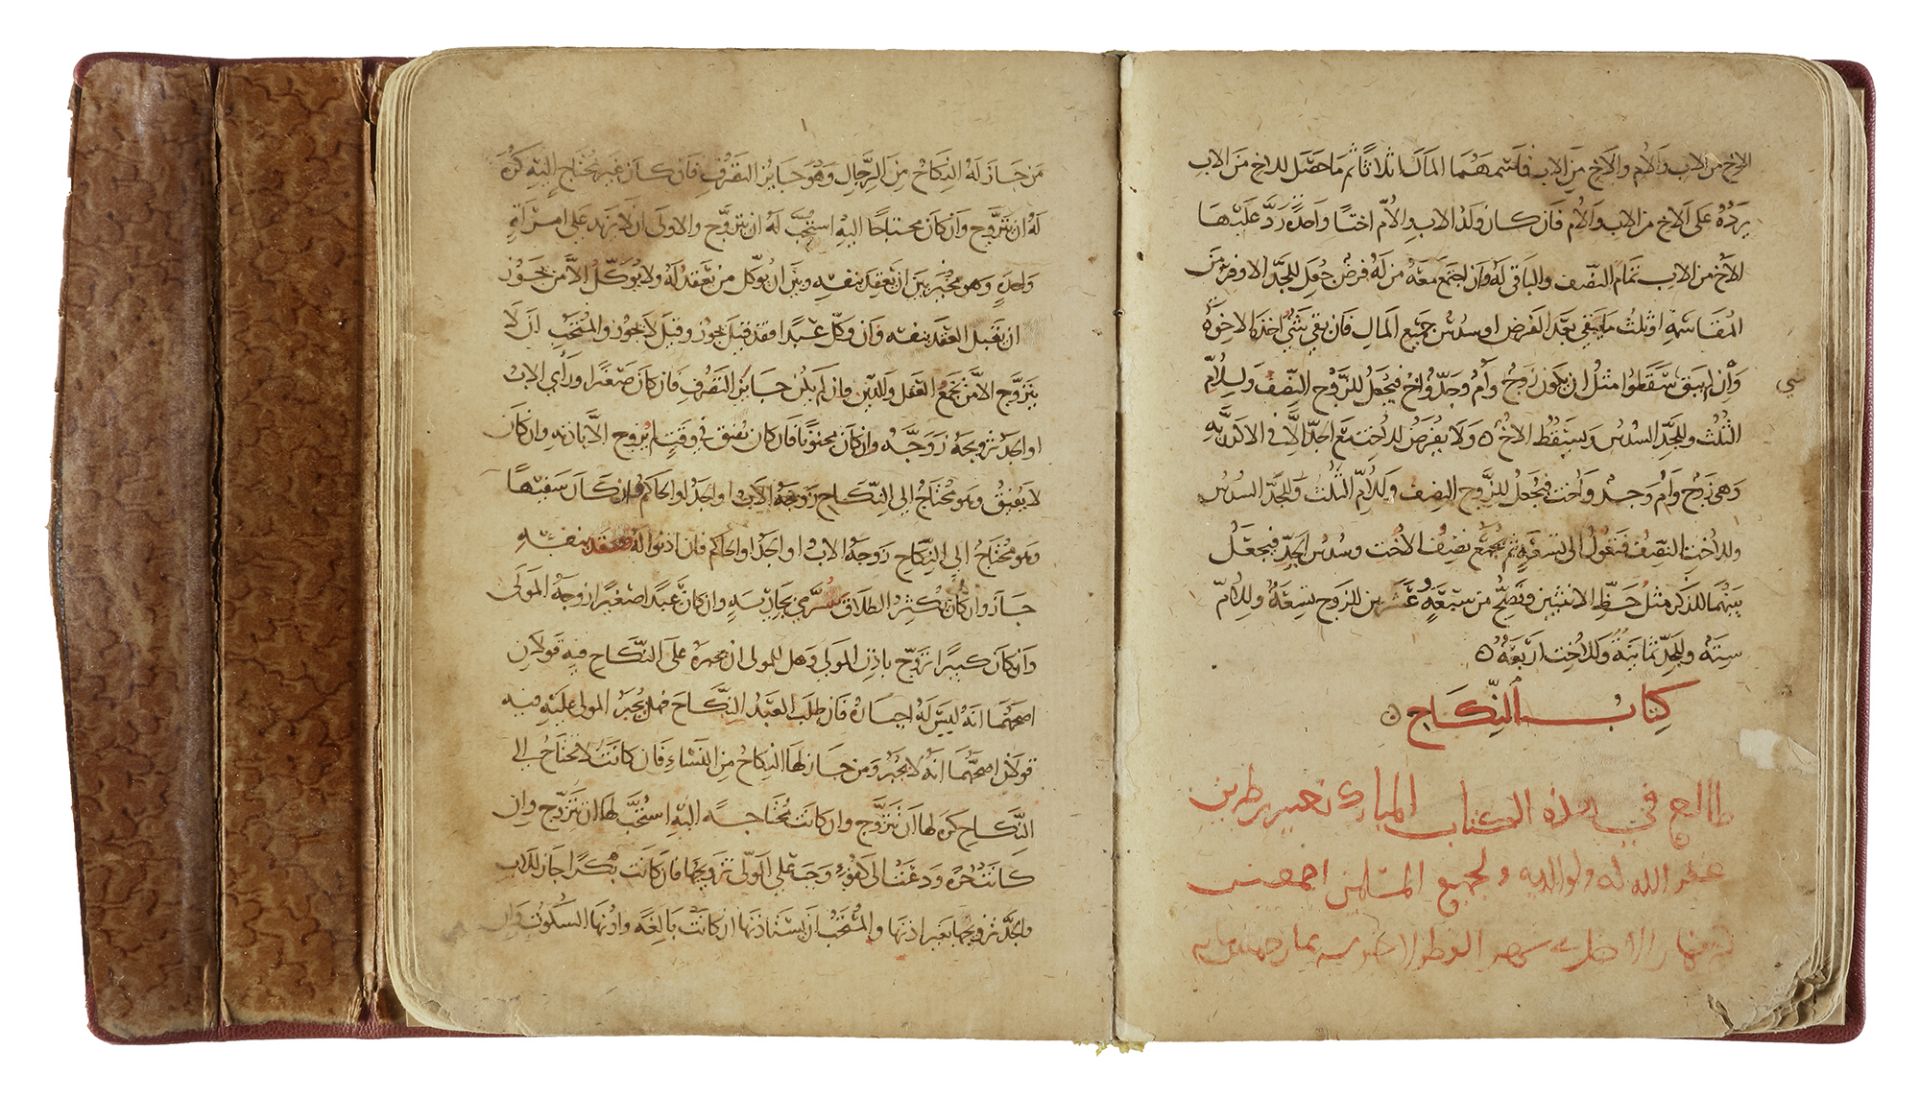 الاخ من الاب والام والاخ من الاب قاسمهما المال اثلاثا ثم ما حصل للاخ من الاب
يرده على الاخ من الاب والام فان كان ولد الاب والام اختا واحدة رد عليها
الاخ من الاب تمام النصف والباقي له وان اجتمع معه من له فرض جعل للجد الاوفر من
المقاسمة او ثلث ما يبقى بعد الفرض او سدس جميع المال فان بقي شي اخذه الاخوة
وان لم يبق سقطوا مثل ان يكون زوج وام وجد واخ فيجعل للزوج النصف وللام
شي
الثلث وللجد السدس ويسقط الاخ ولا يفرض للاخت مع الجد الا في الاكدرية
وهي زوج وام وجد واخت فيجعل للزوج النصف وللام الثلث وللجد السدس
وللاخت النصف فتعول الى تسعة ثم يجمع نصف الاخت وسدس الجد فيجعل
بينهما للذكر مثل حظ الانثيين وتصح من سبعة وعشرين للزوج تسعة وللام
ستة وللجد ثمانية وللاخت اربعة
كتاب النكاح
طالع في هذه الكتاب المبارك
غفر الله له ولوالديه ولجميع المسلمين اجمعين
من جاز له النكاح من الرجال وهو جايز التصرف فان كان غير محتاج اليه كره
له ان يتزوج وان كان محتاجا اليه استحب له ان يتزوج والاولى ان لا يزيد على امراة
واحدة وهو مخير بين ان يعقد بنفسه وبين ان يوكل من يعقد له ولا يوكل الا من يجوز
ان يقبل العقد بنفسه وان وكل عبدا فقد قيل يجوز وقيل لا يجوز والمستحب ان لا
يتزوج الا من يجمع العقل والدين وان لم يكن جايز التصرف فان كان صغيرا وراي الاب
او الجد تزويجه زوجه وان كان مجنونا فان كان يفيق في وقت لم يزوج الا باذنه وان كان
لا يفيق وهو محتاج الى النكاح زوجه الاب او الجد او الحاكم وان كان سفيها
وهو محتاج الى النكاح زوجه الاب او الجد او الحاكم فان اذنوا له فعقد بنفسه
جاز وان كان يكثر الطلاق سري بجارية وان كان عبدا صغيرا زوجه المولى
وان كان كبيرا تزوج باذن المولى وهل للمولى ان يجبره على النكاح فيه قولان
اصحهما انه ليس له اجباره فان طلب العبد النكاح فهل يجبر المولى عليه فيه
قولان اصحهما انه لا يجبر ومن جاز لها النكاح من النساء فان كانت لا تحتاج الى
النكاح كره لها ان تتزوج وان كانت محتاجة اليه استحب لها ان تتزوج وان
كانت حرة ودعت الى كفوء وجب على الولي تزويجها فان كانت بكرا جاز للاب
والجد تزويجها بغير اذنها والمستحب ان يستاذنها ان كانت بالغة واذنها السكوت وان